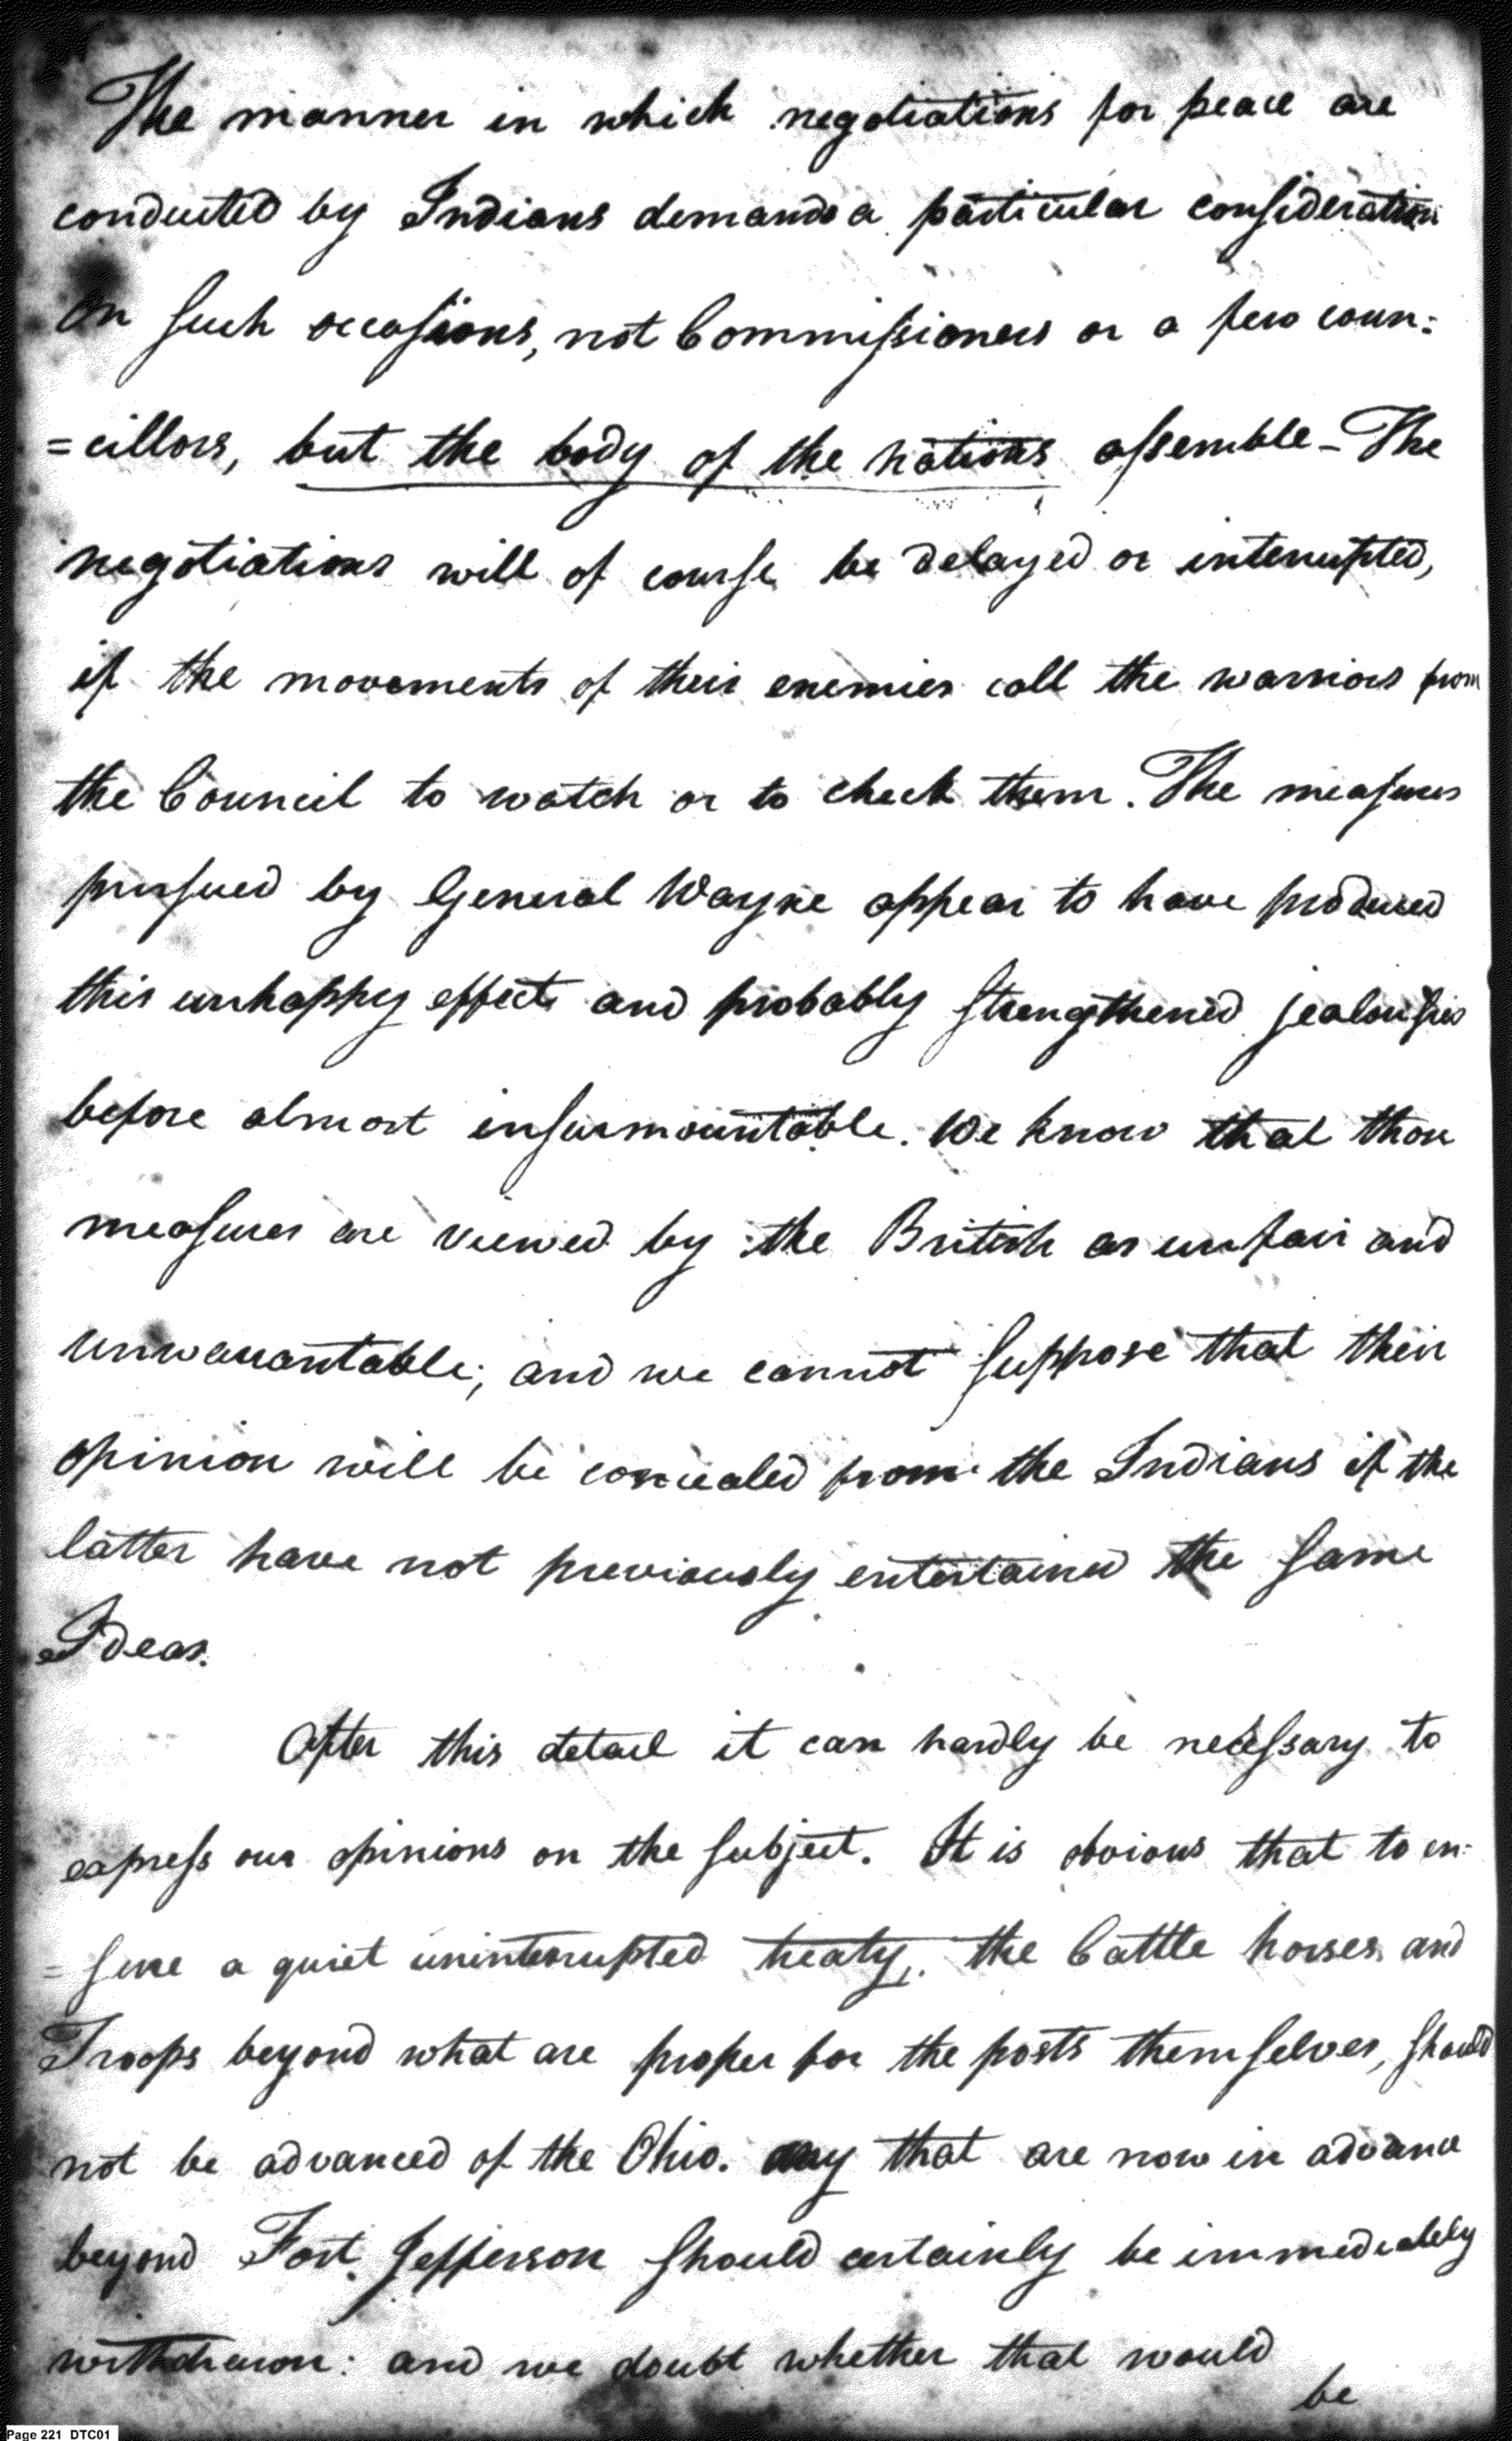 The manner in which negotiations for peace are
conducted by Indians demands a particular consideration
On such occasions, not Commissioners or a few coun:
=cillors, but the body of the nations assemble - The
negotiations will of course be delayed or interrupted,
if the movements of their enemies call the warriors from
the Council to watch or to check them. The measures
pursued by General Wayne appear to have produced
this unhappy effect and probably strengthened jealousies
before almost insurmountable. We know that those
measures are viewed by the British as unfair and
unwarrantable; and we cannot suppose that their
opinion will be concealed from the Indians if the
latter have not previously entertained the same
Ideas.
After this detail it can hardly be necessary to
express our opinions on the subject. It is obvious that to en-
=sure a quiet uninterrupted treaty, the Cattle horses and
Troops beyond what are proper for the posts themselves, should
not be advanced of the Ohio. any that are now in advance
beyond Fort Jefferson should certainly be immediately
withdrawn: and we doubt whether that would
be
Page 221 DTC01